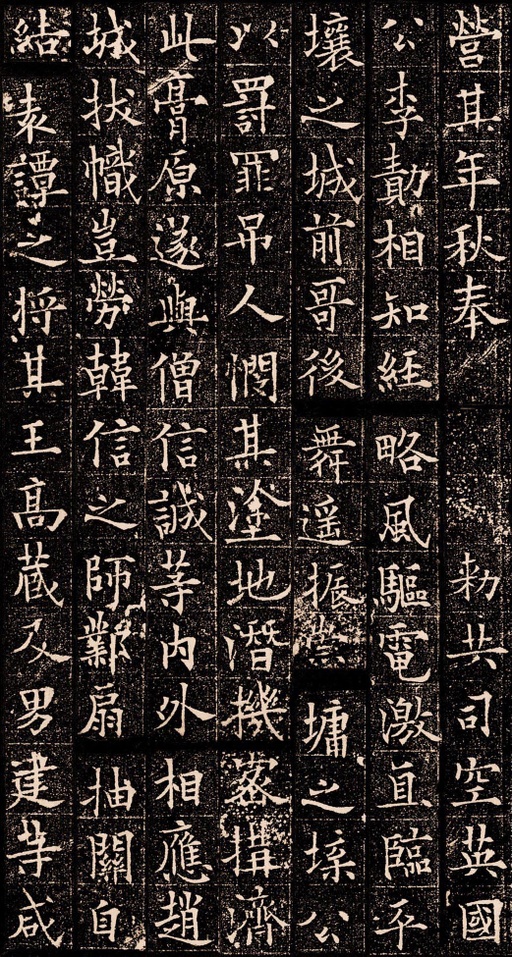 營其年秋奉 勑共司空英國
公李勣相知經略風驅電激直臨平
壤之城前哥後舞遥振崇墉之堞公
以罰罪吊人憫其塗地潛機密構濟
此膏原遂與僧信誠等内外相應趙
城拔幟豈勞韓信之師鄴扇抽關自
結袁譚之將其王高藏及男建等咸